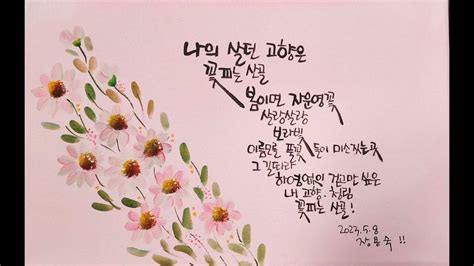 나의 살던 고향은
꽃피는 산골
봄이면 자운영꽃
살랑살랑
보라빛
이름모를 풀꽃들이 미소짓는곳
그 길따라
하염없이 걷고만 싶은
내 고향. 청림
꽃피는 산골!
2023.5.8
장용숙!!